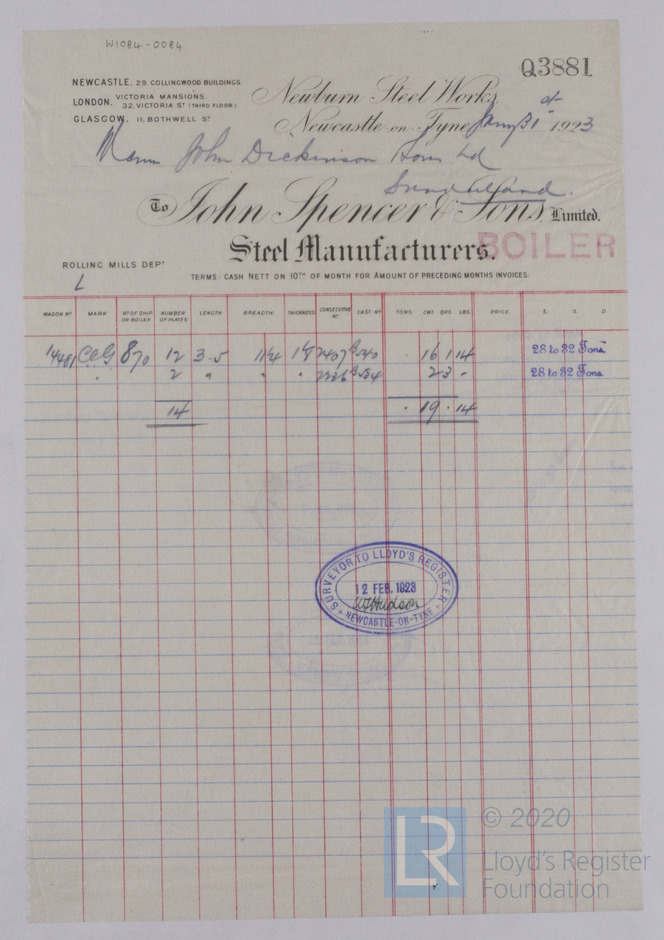 W1084-0084
Q3881
NEWCASTLE. 29, COLLINGWOOD BUILDINGS.
LONDON. VICTORIA MANSIONS. 32, VICTORIA ST (THIRD FLOOR)
GLASGOW, 11, BOTHWELL ST
Newburn Steel Works,
Newcastle-on-Tyne, 31st 1923
John Dickinson Sons Ld
Sunderland.
To John Spencer & Sons, Limited.
Steel Manufacturers.
BOILER
ROLLING MILLS DEPT
L
TERMS: CASH NETT ON 10TH OF MONTH FOR AMOUNT OF PRECEDING MONTHS INVOICES.
WAGON No. MARK No. OF SHIP OR BOILER NUMBER OF PLATES LENGTH BREADTH. THICKNESS CONSECUTIVE No. CAST No. TONS. CWT QRS. LBS. PRICE. £. S. D.
870 12 3-5 16 1 14 28 to 32 Tons
2 " " " 2 3 " 28 to 32 Tons
14 19 . 14
SURVEYOR TO LLOYD'S REGISTER
12 FEB. 1923
Hudson
NEWCASTLE-ON-TYNE
LR
© 2020
Lloyd's Register
Foundation